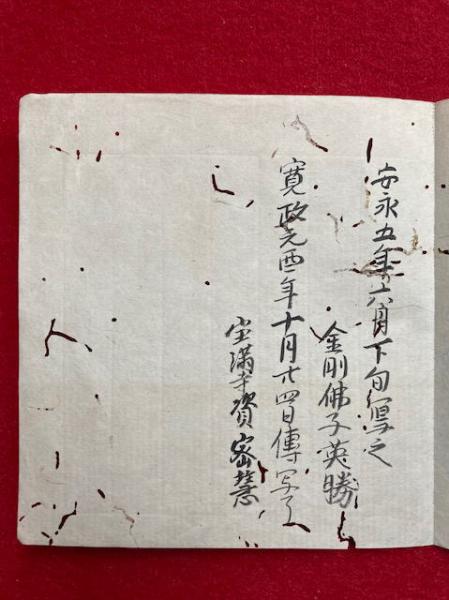 安永五年六月下旬寫之
金剛佛子英勝
寛政元酉年十月廿四日傳写了
宝満寺資密慧